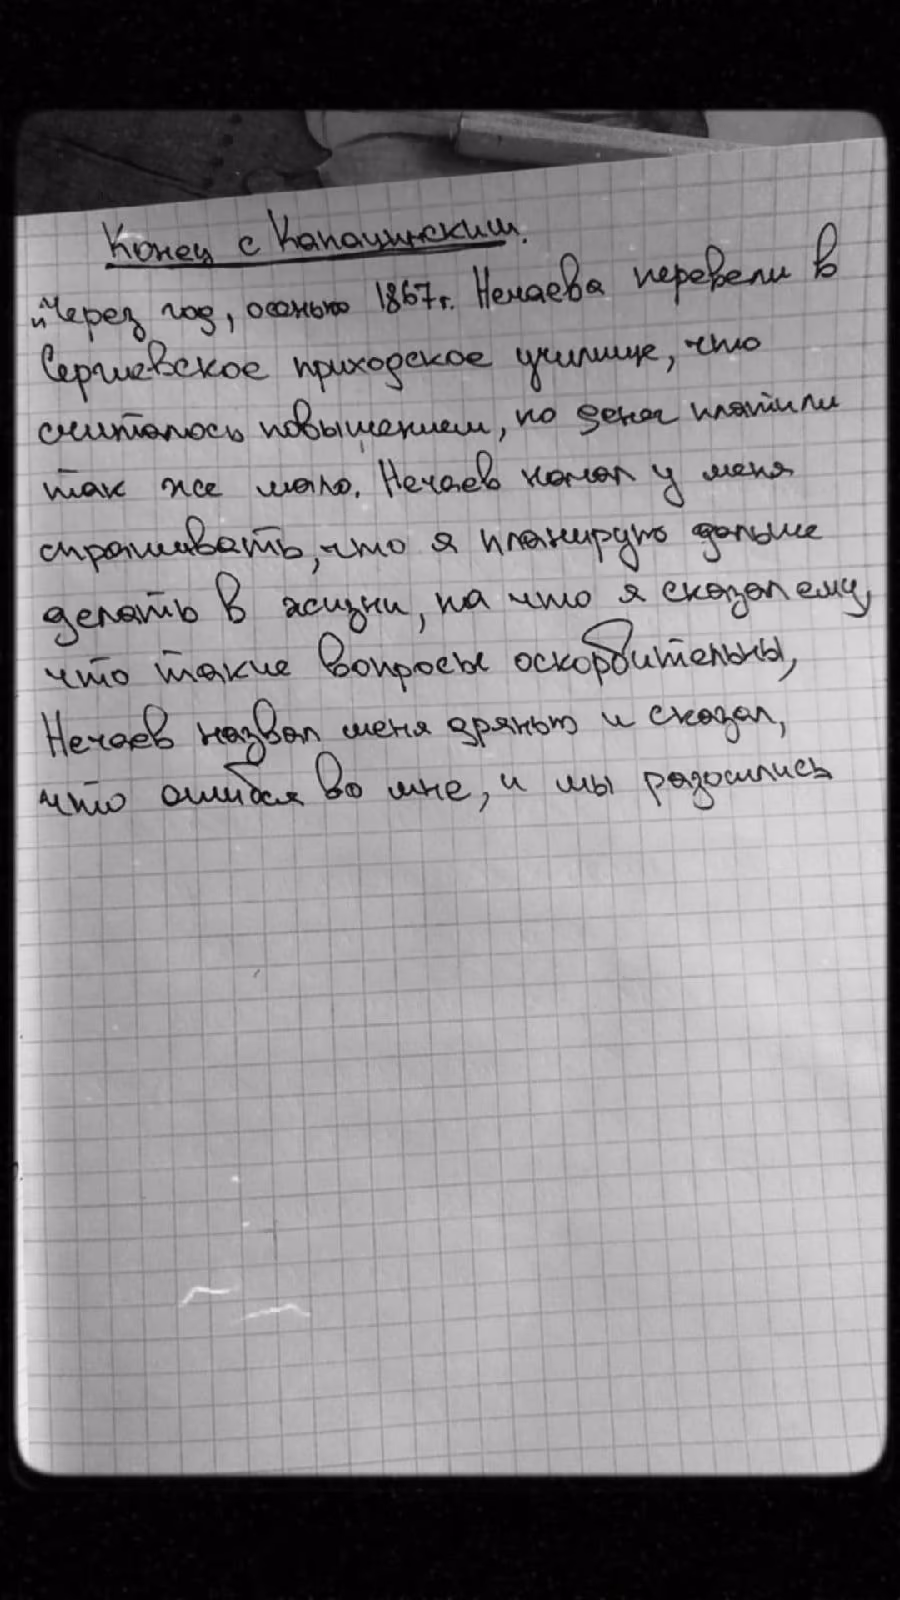 Конец с Капацинским.
„Через год, осенью 1867г. Нечаева перевели в
Сергиевское приходское училище, что
считалось повышением, но денег платили
так же мало. Нечаев начал у меня
спрашивать, что я планирую дальше
делать в жизни, на что я сказал ему,
что такие вопросы оскорбительны,
Нечаев назвал меня дрянью и сказал,
что ошибся во мне, и мы разошлись